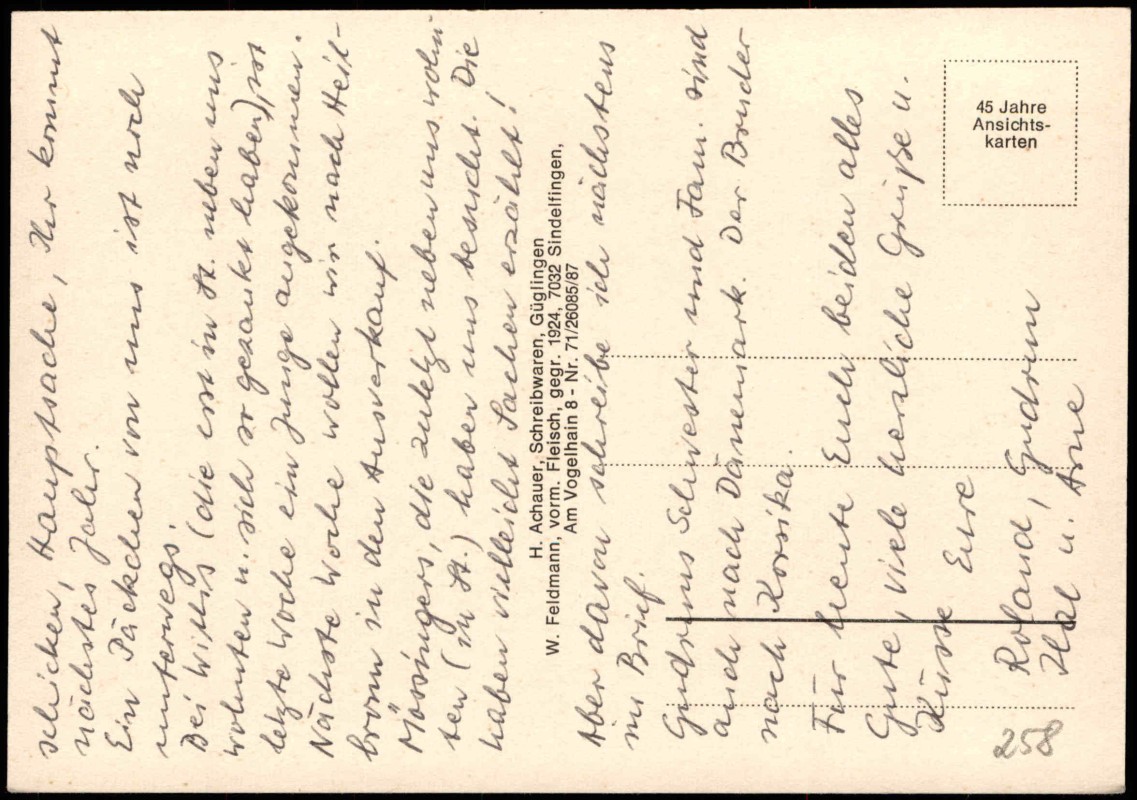 schicken, Hauptsache, Ihr kommt
nächstes Jahr.
Ein Päckchen von uns ist noch
unterwegs.
Bei Wittis (die erst in St. neben uns
wohnten u. sich so gezankt haben), ist
letzte Woche ein Junge angekommen.
Nächste Woche wollen wir nach Heil-
bronn in den Ausverkauf.
Mössingers, die zuletzt neben uns wohn-
ten (in St.) haben uns besucht. Die
haben vielleicht Sachen erzählt!
H. Achauer, Schreibwaren, Güglingen
W. Feldmann, vorm. Fleisch, gegr. 1924, 7032 Sindelfingen,
Am Vogelhain 8 - Nr. 71/26085/87
Aber davon schreibe ich nächstens
im Brief.
Gudruns Schwester und Fam. sind
auch nach Dänemark. Der Bruder
nach Korsika.
Für heute Euch beiden alles
Gute, viele herzliche Grüße u.
Küsse Eure
Roland, Gudrun
u. Arne
45 Jahre
Ansichts-
karten
258